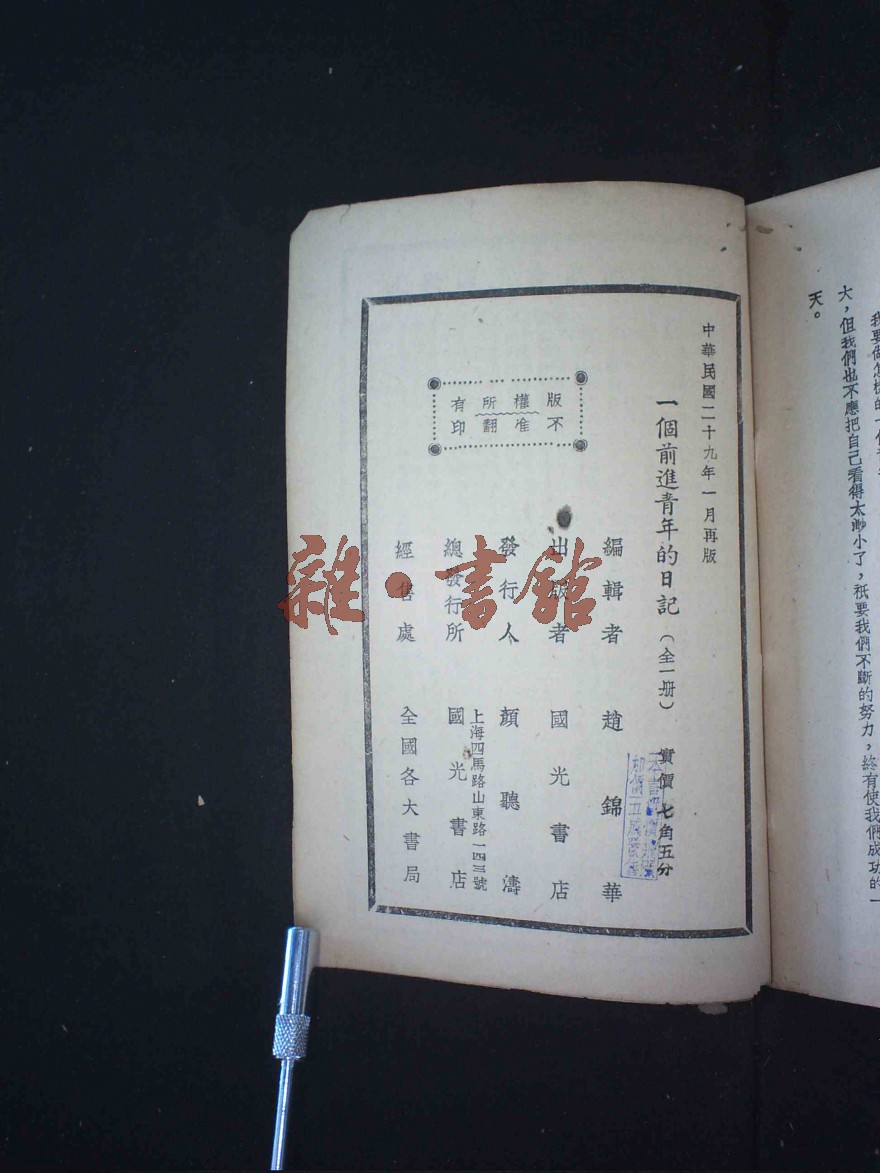 我要做怎樣的一個
大，但我們也不應把自己看得太渺小了，祇要我們不斷的努力，終有使我們成功的一
天。
中華民國二十九年一月再版
一個前進青年的日記（全一册）
實價七角五分
編輯者 趙錦華
出版者 國光書店
發行人 顏聽濤
上海四馬路山東路一四三號
總發行所 國光書店
經售處 全國各大書局
版權所有
不准翻印
雜·書館